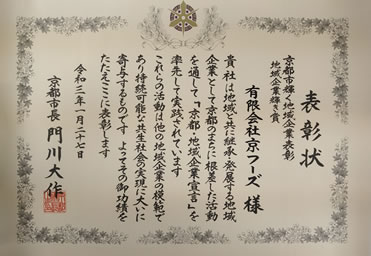 表彰状
京都市輝く地域企業表彰
地域企業輝き賞
有限会社京フーズ 様
貴社は地域と共に継承・発展する地域
企業として京都のまちに根差した活動
を通して、「京都・地域企業宣言」を
率先して実践されています
これらの活動は他の地域企業の模範で
あり持続可能な共生社会の実現に大いに
寄与するものです よってその御功績を
たたえここに表彰します
令和三年一月二十七日
京都市長 門川大作